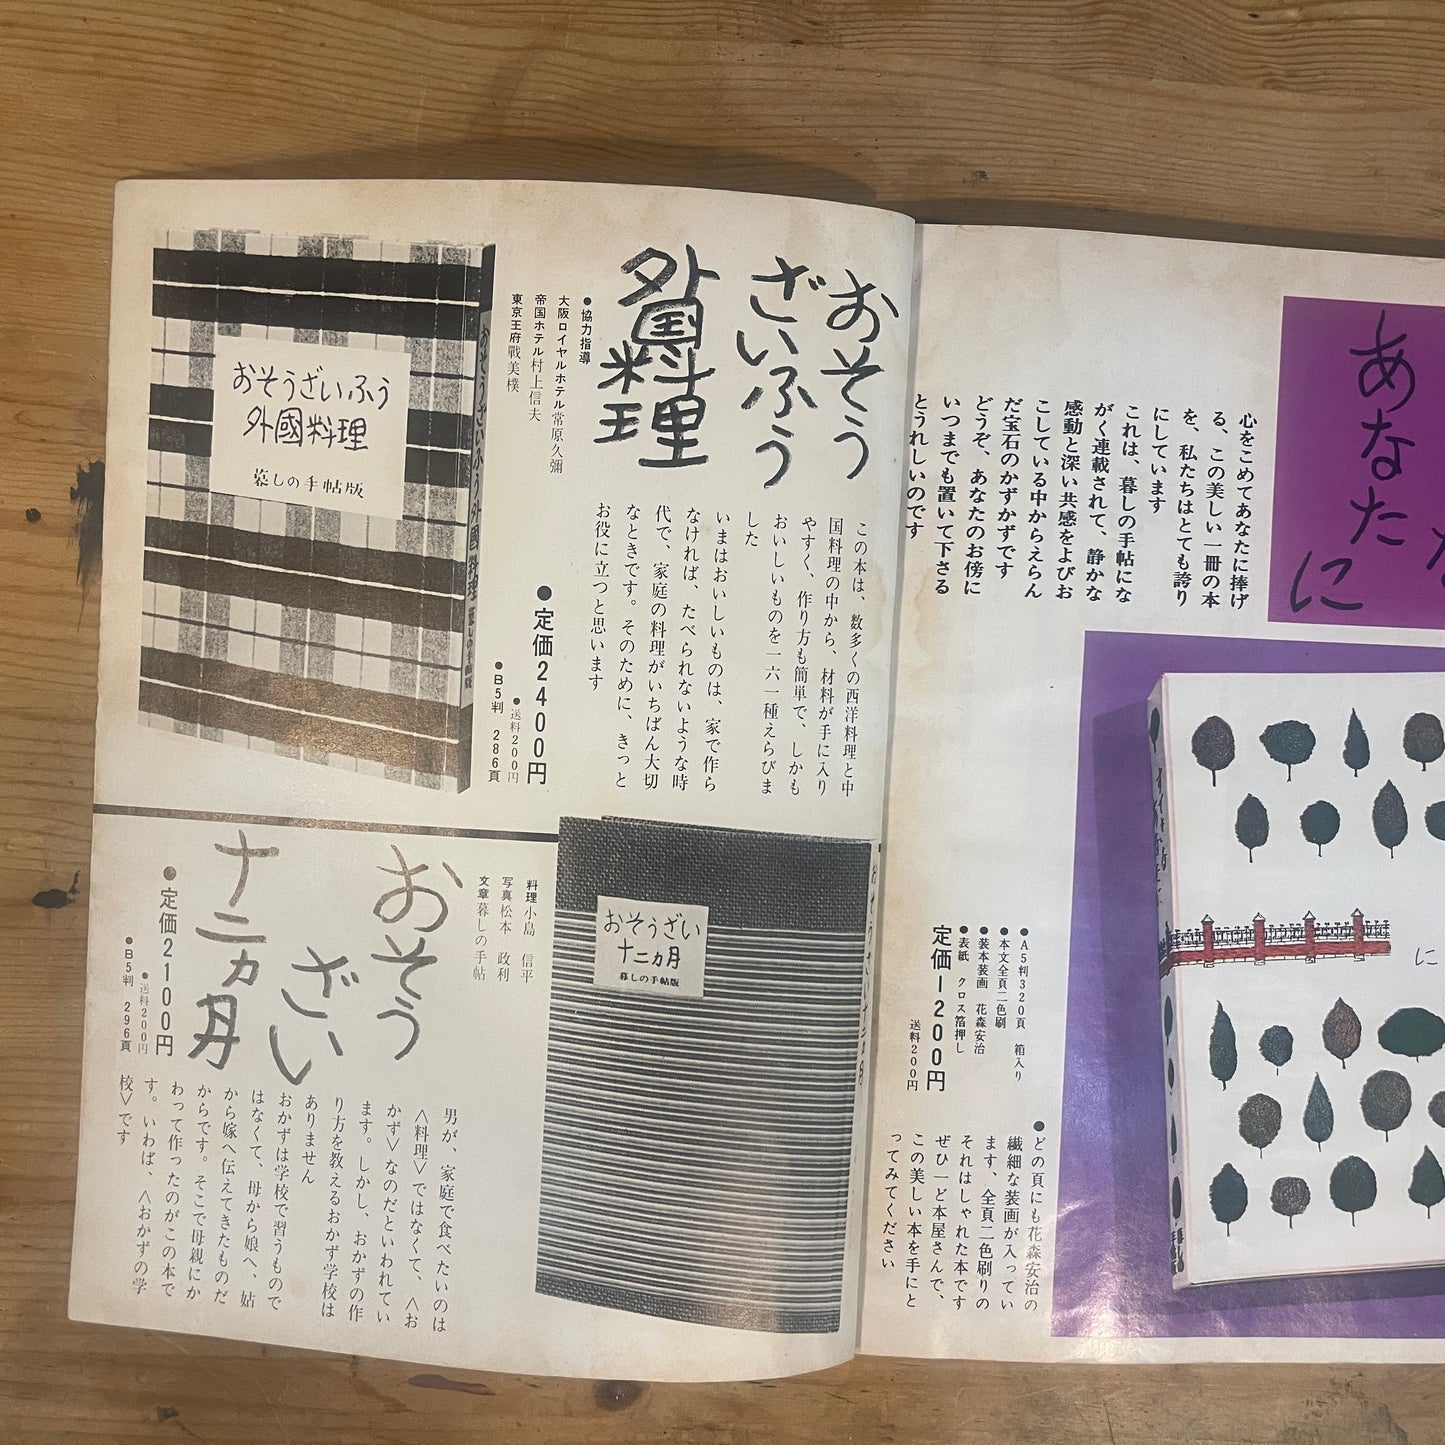 あなたに
心をこめてあなたに捧げ
る、この美しい一冊の本
を、私たちはとても誇り
にしています
これは、暮しの手帖にな
がく連載されて、静かな
感動と深い共感をよびお
こしている中からえらん
だ宝石のかずかずです
どうぞ、あなたのお傍に
いつまでも置いて下さる
とうれしいのです
●A5判320頁 箱入り
●本文全頁二色刷
●装本装画 花森安治
●表紙 クロス箔押し
定価1200円
送料200円
●どの頁にも花森安治の
繊細な装画が入ってい
ます、全頁二色刷りの
それはしゃれた本です
ぜひ一ど本屋さんで、
この美しい本を手にと
ってみてください
に
おそう
ざいふう
外國料理
●協力指導
大阪ロイヤルホテル常原久彌
帝国ホテル村上信夫
東京王府戰美樸
この本は、数多くの西洋料理と中
国料理の中から、材料が手に入り
やすく、作り方も簡単で、しかも
おいしいものを一六一種えらびま
した
いまはおいしいものは、家で作ら
なければ、たべられないような時
代で、家庭の料理がいちばん大切
なときです。そのために、きっと
お役に立つと思います
●定価2400円
●送料200円
●B5判 286頁
おそうざいふう
外國料理
暮しの手帖版
おそうざいふう外國料理 暮しの手帖版
おそう
ざい
十二ヵ月
料理 小島 信平
写真 松本 政利
文章 暮しの手帖
●定価2100円
●送料200円
●B5判 296頁
男が、家庭で食べたいのは
〈料理〉ではなくて、〈お
かず〉なのだといわれてい
ます。しかし、おかずの作
り方を教えるおかず学校は
ありません
おかずは学校で習うもので
はなくて、母から娘へ、姑
から嫁へ伝えてきたものだ
からです。そこで母親にか
わって作ったのがこの本で
す。いわば、〈おかずの学
校〉です
おそうざい
十二ヵ月
暮しの手帖版
おそうざい十二ヵ月